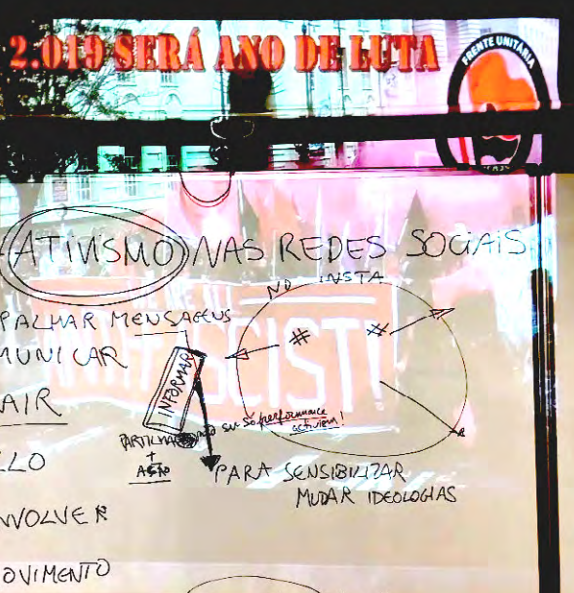 2.019 SERÁ ANO DE LUTA
FRENTE UNITÁRIA
ATIVISMO NAS REDES SOCIAIS
NO INSTA
PALHAR MENSAGENS
MUNICAR
# #
INFORMAR
AIR
PARTILHAR
só performance
activism!
+
AÇÃO
LLO
PARA SENSIBILIZAR
MUDAR IDEOLOGIAS
NVOLVER
OVIMENTO